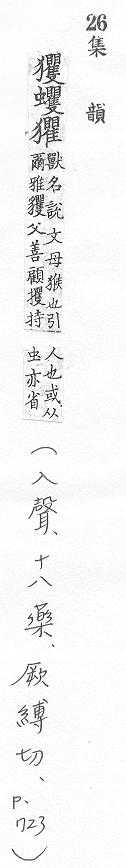 26集韻
玃蠼㹤
獸名說文母猴也引
爾雅玃父善顧攫持
人也或从
虫亦省
（入聲、十八藥、厥縛切、p.723）